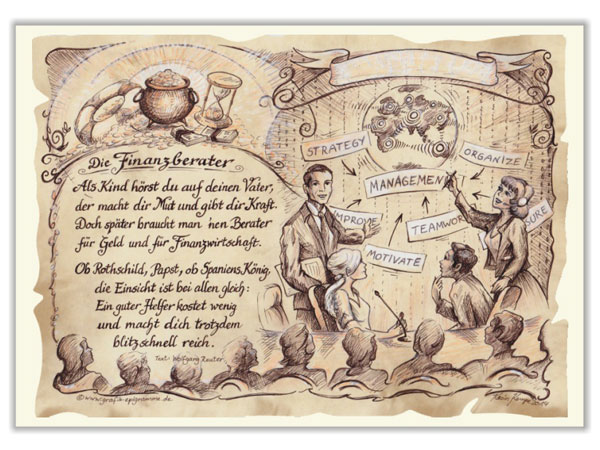 Die Finanzberater
Als Kind hörst du auf deinen Vater,
der macht dir Mut und gibt dir Kraft.
Doch später braucht man nen Berater
für Geld und für Finanzwirtschaft.
Ob Rothschild, Papst, ob Spaniens König,
die Einsicht ist bei allen gleich:
Ein guter Helfer kostet wenig
und macht dich trotzdem
blitzschnell reich.
Text: Wolfgang Reuter
©www.grafik-epigramme.de
STRATEGY
ORGANIZE
MANAGEMENT
IMPROVE
TEAMWORK
MOTIVATE
2014